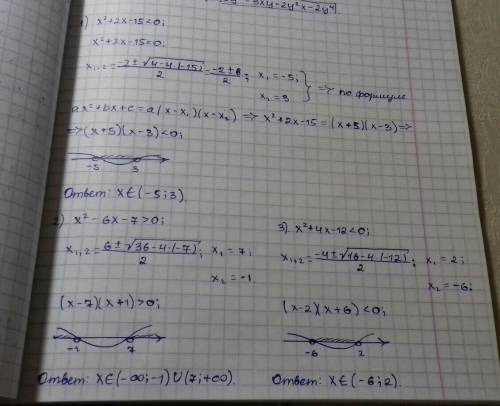 -3xy-2y²x-2y⁴|.
1) x²+2x-15<0;
x²+2x-15=0;
x₁,₂ = (-2±√(4-4·(-15)))/2 = (-2±8)/2; x₁=-5; x₂=3 } => по формуле
ax²+bx+c=a(x-x₁)(x-x₂) => x²+2x-15=(x+5)(x-3)=>
=>(x+5)(x-3)<0;
-5 3
Ответ: x∈(-5;3).
2) x²-6x-7>0;
x₁,₂ = (6±√(36-4·(-7)))/2; x₁=7;
x₂=-1.
(x-7)(x+1)>0;
-1 7
Ответ: x∈(-∞;-1)∪(7;+∞).
3) x²+4x-12<0;
x₁,₂ = (-4±√(16-4·(-12)))/2; x₁=2;
x₂=-6;
(x-2)(x+6)<0;
-6 2
Ответ: x∈(-6;2).